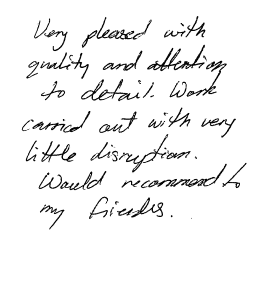 Very pleased with
quality and attention
to detail. Work
carried out with very
little disruption.
Would recommend to
my friends.